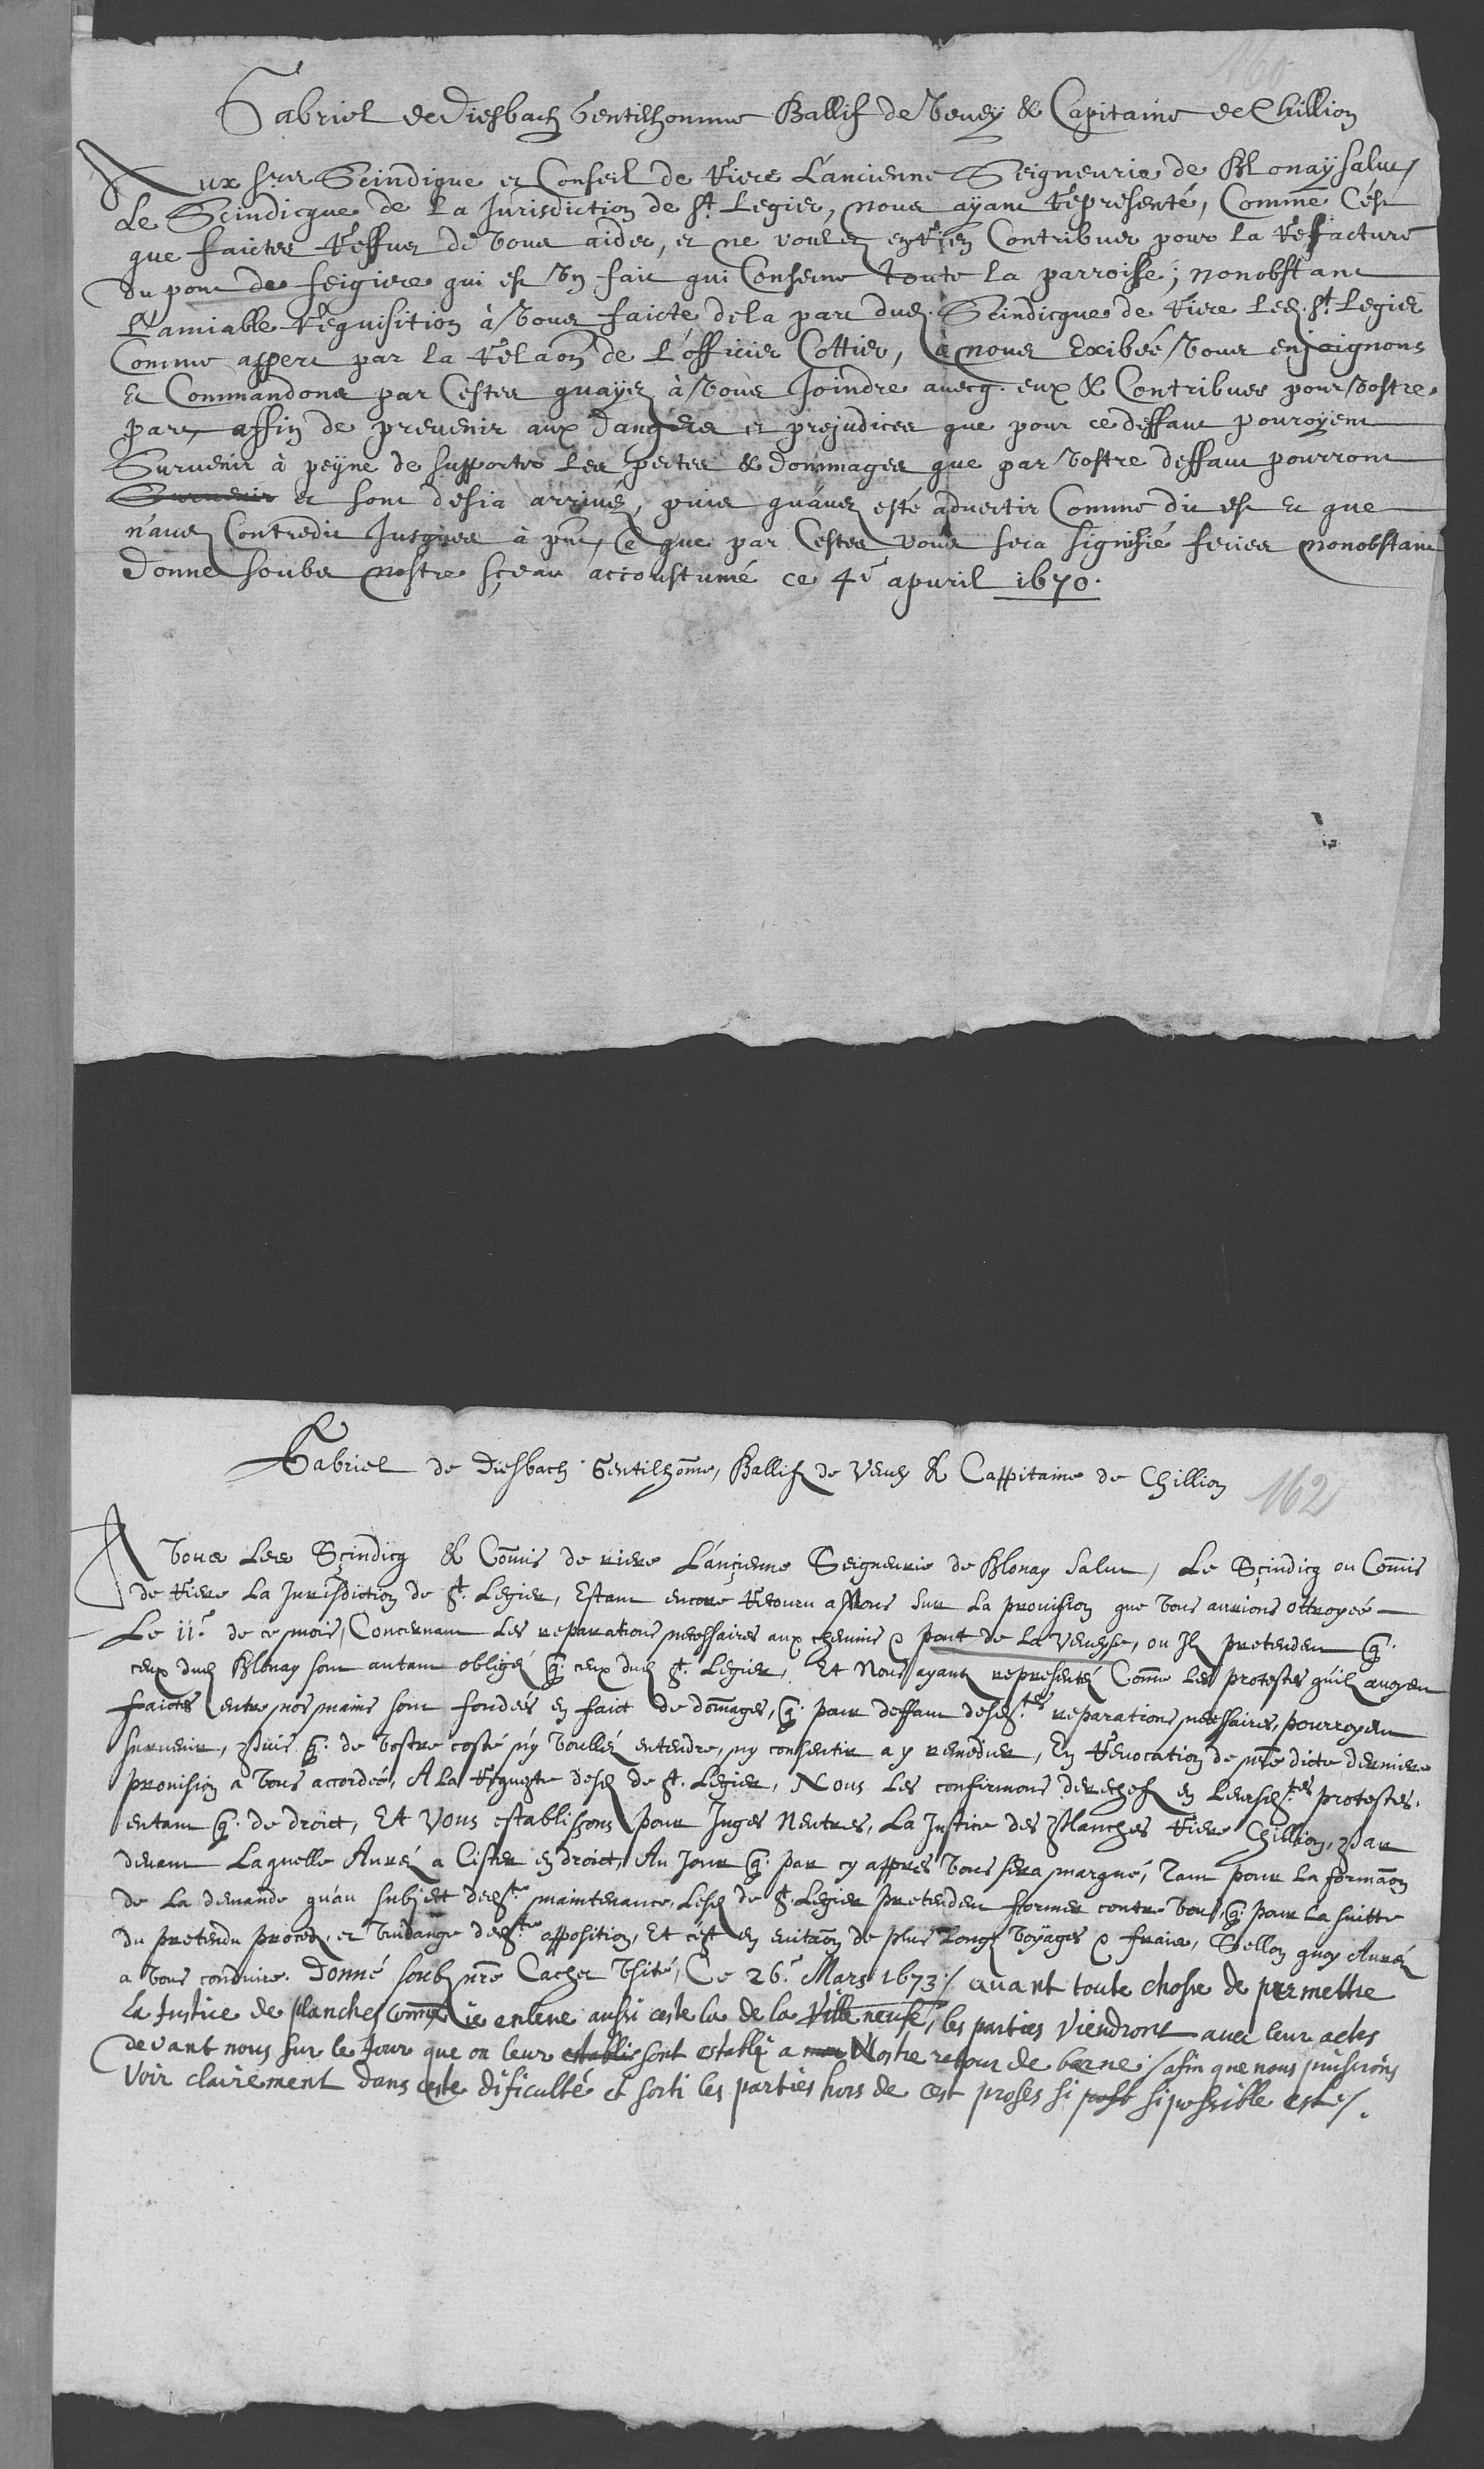 160
Gabriel de Diesbach Gentilhomme Ballif de Vevey & Capitaine de Chillion
Aux srs Scindique et Conseil de riere L'ancienne Seigneurie de Blonay salut/
Le Scindicque de La Jurisdiction de St Legier, nous ayant representé, Comme C'est
que faictes reffus de vous aider, et ne voulez en rien Contribuer pour la reffacture
du pont de feigiere qui est un fait qui Conserne toute la parroisse; nonobstant
L'amiable requisition à vous faicte de la part dud. Scindicque de riere led. St Legier
Comme appert par la relaon de L'officier Cottier, à nous Exibée/ vous enjoignons
Et Commandons par Cestes quayez à vous Joindre avecq. eux & Contribuer pour vostre
part, affin de prevenir aux dangers et prejudices que pour ce deffaut pouroyent
Survenir à peyne de supporter Les pertes & dommages que par vostre deffaut pourront
Survenir et sont desia arrivéz, puis qu'avez esté advertis Comme dit est Et que
n'avez Contredit Jusques à pnt, Ce que par Cestes vous sera signifié feries nonobstant
Donné soubs nostre sçeau accoustumé ce 4e apvril 1670.
Gabriel de Diesbach Gentilhome, Ballif de Vevey & Cappitaine de Chillion
162
A vous Les Sçindicq & Comis de riere L'ançienne Seigneurie de Blonay Salut, Le Sçindicq ou Comis
de riere La Jurisdiction de St. Legier, Estant encore retourn a Nous sur La provision que vous aurions ottroyeé
Le 11e de ce mois, Concernant Les reparations necessaires aux chemins & pont de La Veveyse, ou Ilz pretendent q.
ceux dud Blonay sont autant obligéz q. ceux dud St. Legier, Et Nous ayant representéz Come Les protestes qu'ilz avoyent
faictes entre nos mains sont fondeés en faict de domages, q. pour deffaut desdtes reparations necessaires, pourroyent
survenir, Puis q. de vostre costé n'y voulléz entendre, ny consentir a y remedier, En revocation de nre dicte derniere
provision a vous accordeé, A La requeste desd de St. Legier, Nous Les confirmons derechef en Leursdtes protestes,
entant q. de droict, Et Vous establissons pour Juges Neutres, La Justice des Planches riere Chillion, Par
devant Laquelle Auréz a Cister en droict, Au Jour q. par cy appres vous sera marqué, Tant pour La formaon
de La demande qu'au subject dedte maintenance, Lesd de St. Legier pretendent former contre vous, q. pour La suitte
du pretendu procedz, et vuidange dedte opposition, Et c'est en evitaon de plus Longz voÿages & fraix, Sellon quoy Auréz
a vous conduire. Donné soubz nre Cachet Usité, Ce 26e. Mars 1673 / avant toute chosse de permettre
la Justice de planches come ie enleve aussi ceste la de la Ville neufe, les parties viendront avec leur actes
devant nous sur le Jour que on leur establir sont establi a Nostre retour de berne / afin que nous puissions
voir clairement dans ceste dificulté et sorti les parties hors de cest proses si post si possible est /.